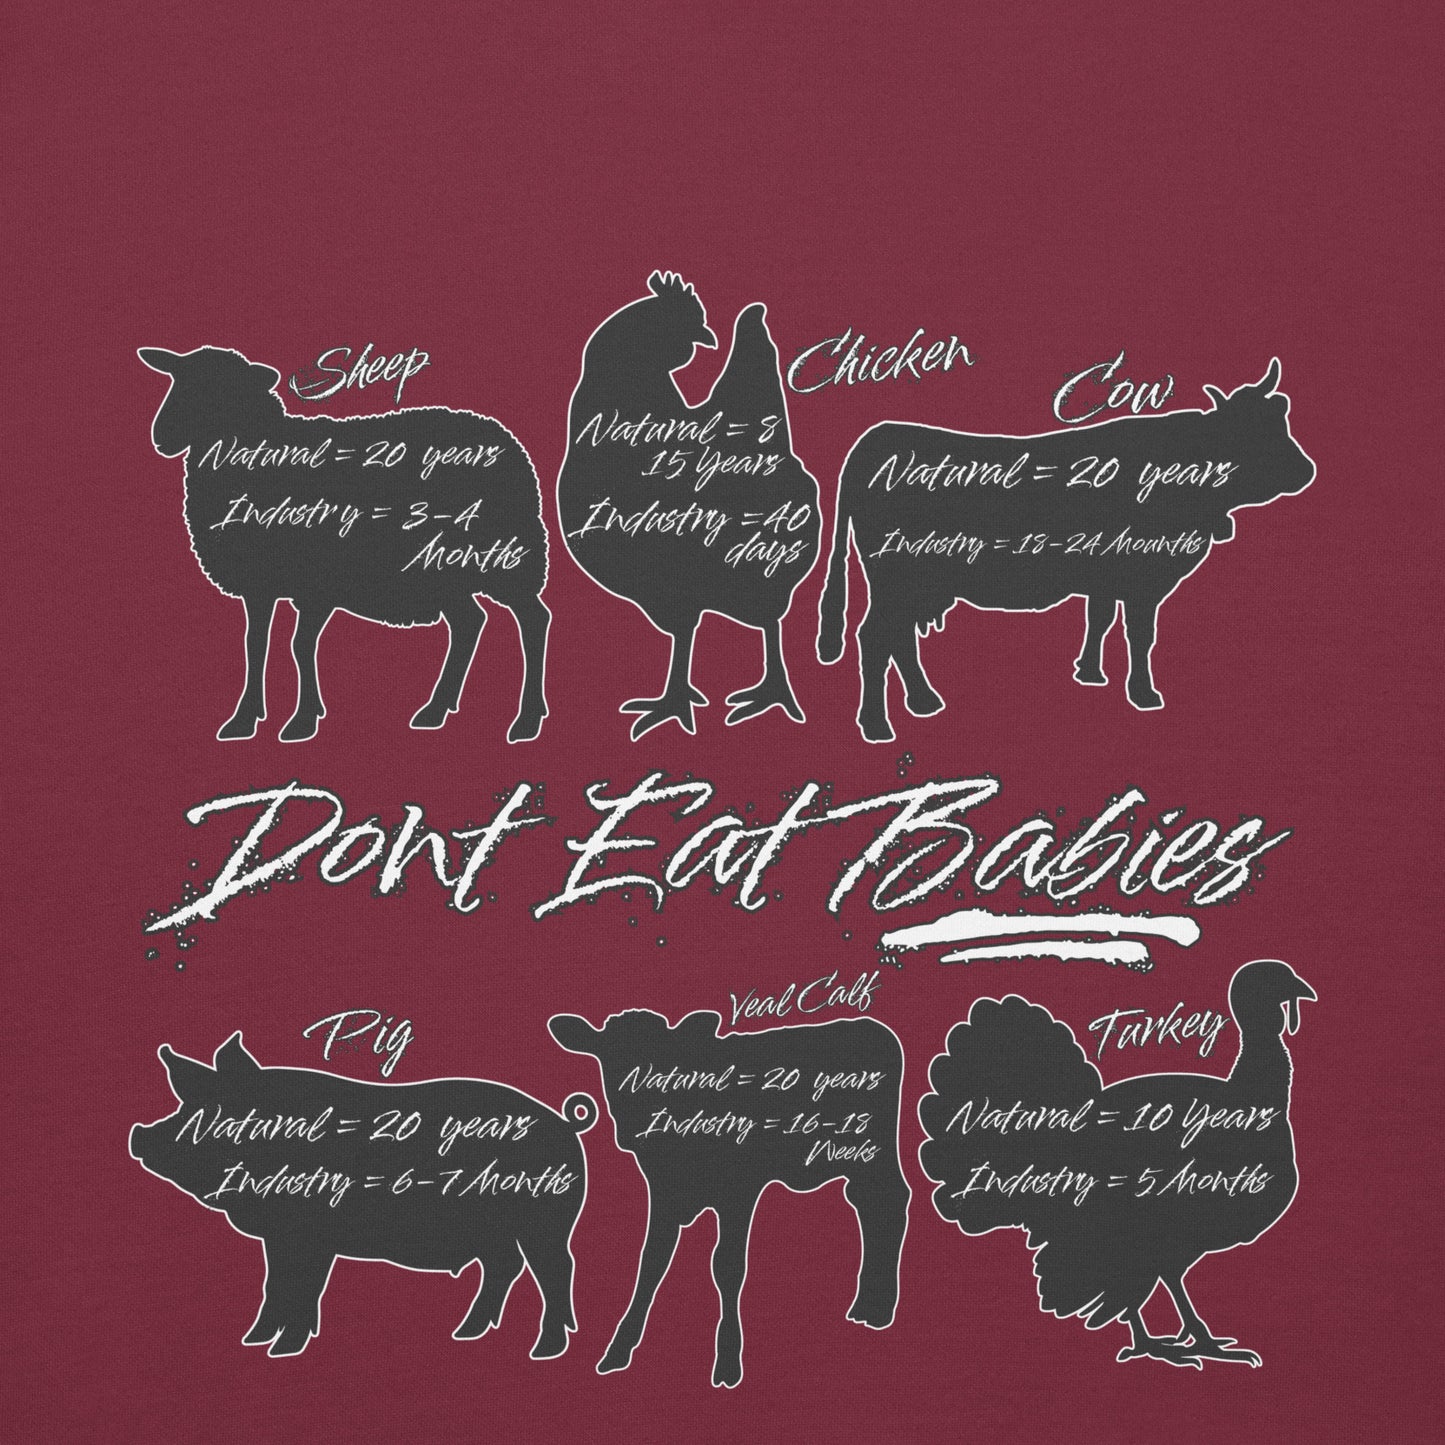 Sheep
Natural = 20 years
Industry = 3-4
Months
Chicken
Natural = 8
15 Years
Industry =40
days
Cow
Natural = 20 years
Industry = 18-24 Mounths
Dont Eat Babies
Pig
Natural = 20 years
Industry = 6-7 Months
Veal Calf
Natural = 20 years
Industry = 16-18
Weeks
Turkey
Natural = 10 Years
Industry = 5 Months